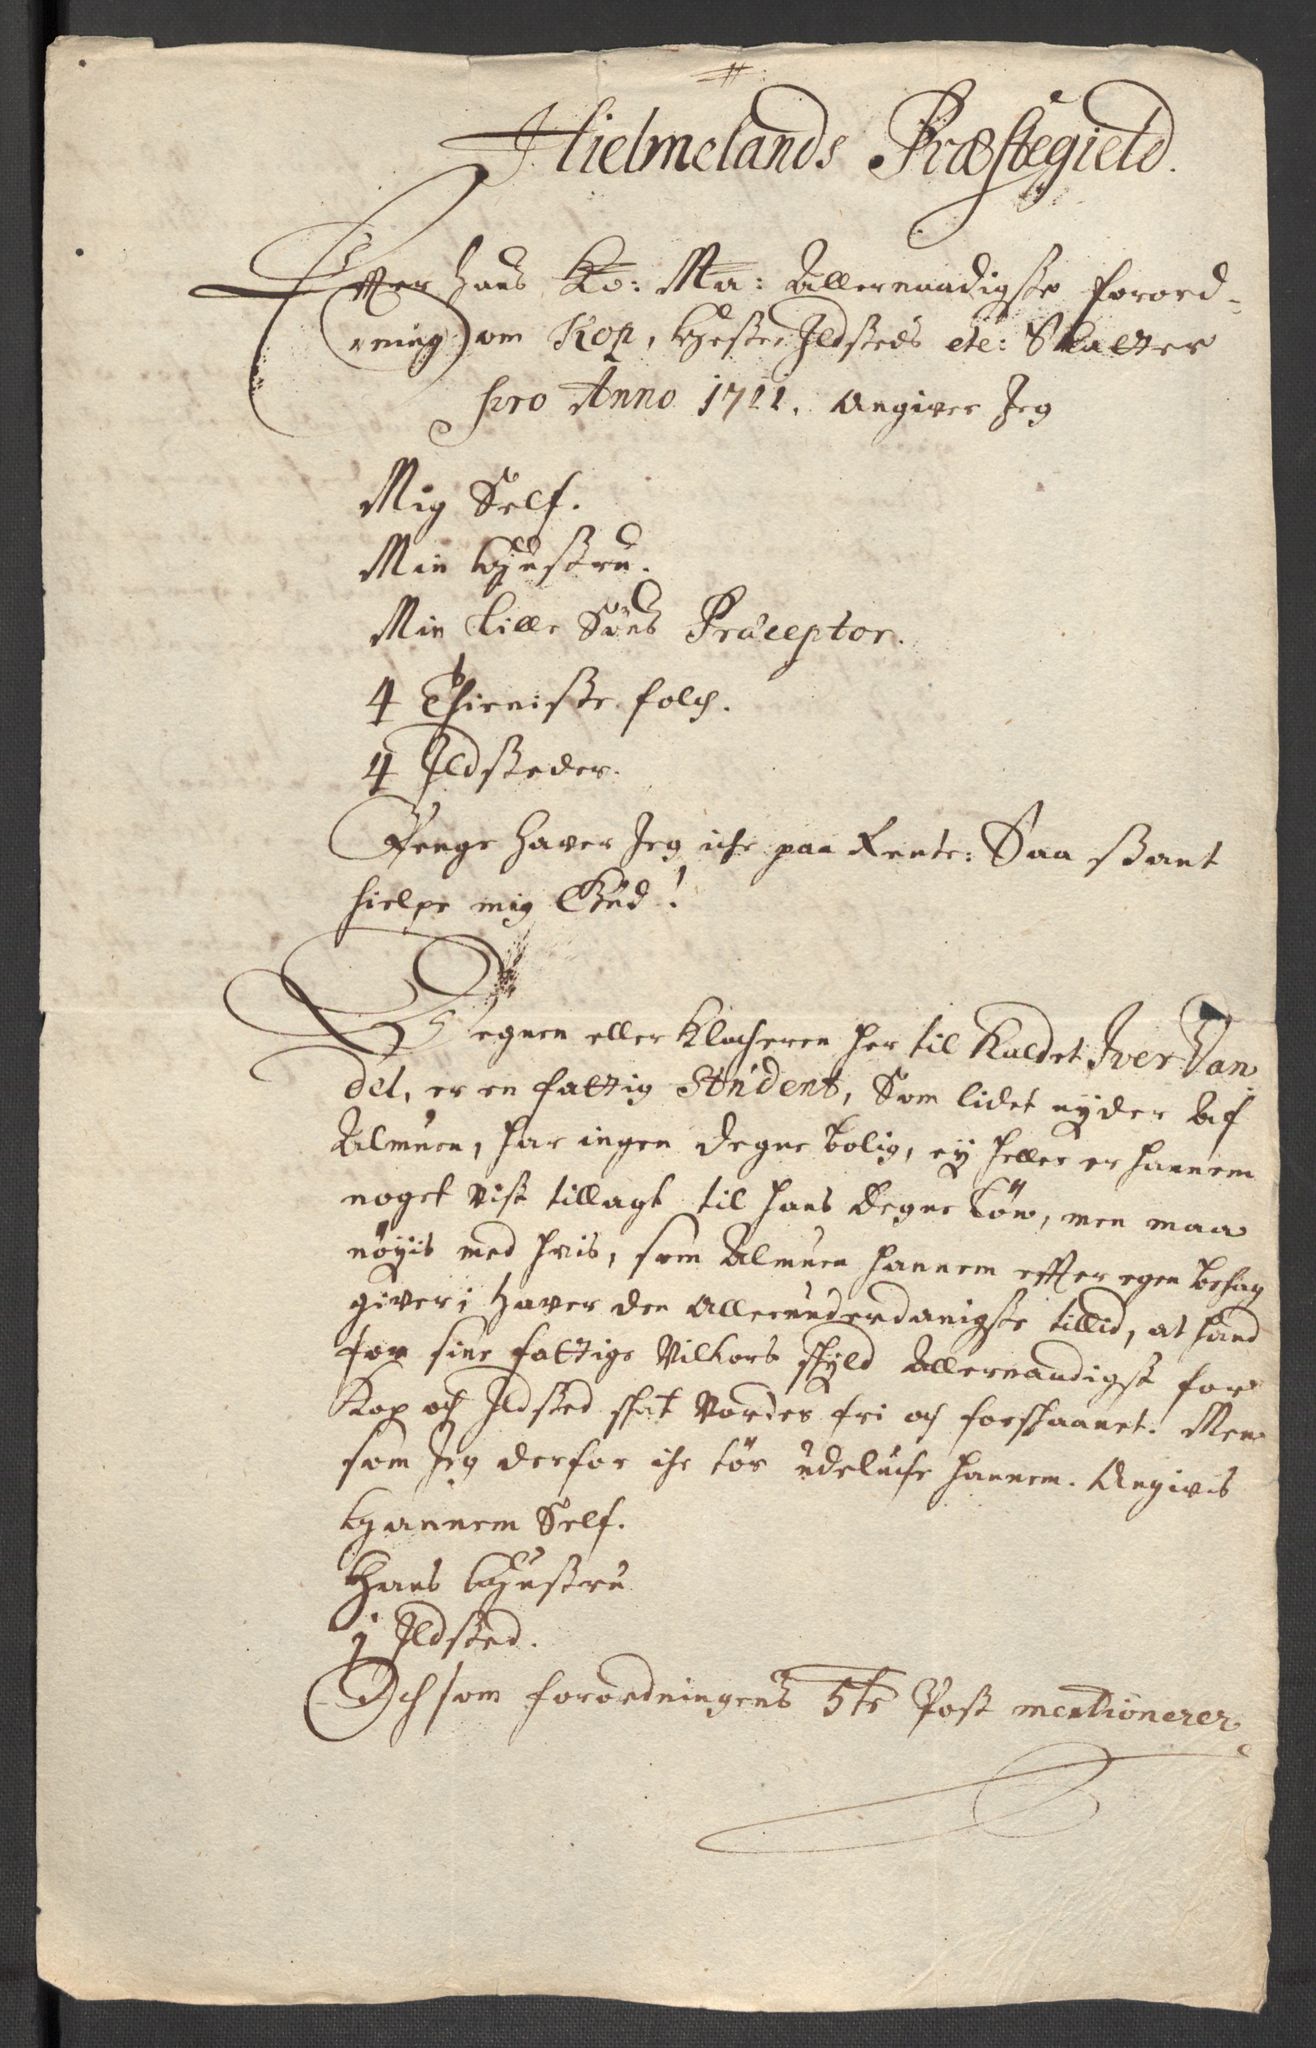 Hielmelands Præstegield.
Effter Hans Ko: Ma: Allernaadigste forord-
ning om Kop, Heste, Ildsteds etc: Skatter
pro Anno 1711. Angiver Jeg
Mig Self.
Min Hustru.
Min lille Søns Præceptor.
4 Thieniste folch.
4 Ildsteder.
Penge haver Jeg iche paa Rente: Saa sant
hielpe mig Gud!
Degnen eller Klocheren her til Kaldet Iver Van
del, er en fattig Student, Som lidet nyder Af
Almuen, har ingen Degne bolig, ey heller er hannem
noget vist tillagt til hans Degne Løn, men maa
nøyis med hvis, som Almuen hannem effter egen behag
giver; haver den Allerunderdanigste tillid, at hand
for sine fattige Vilkors skyld Allernaadigst for
Kop och Ildsted skat vordes fri och forskaanet. Men
som Jeg derfor iche tør udeluche hannem. Angivis
Hannem Self.
Hans Hustru
1 Ildsted.
Och som forordningens 5te Post mentionerer